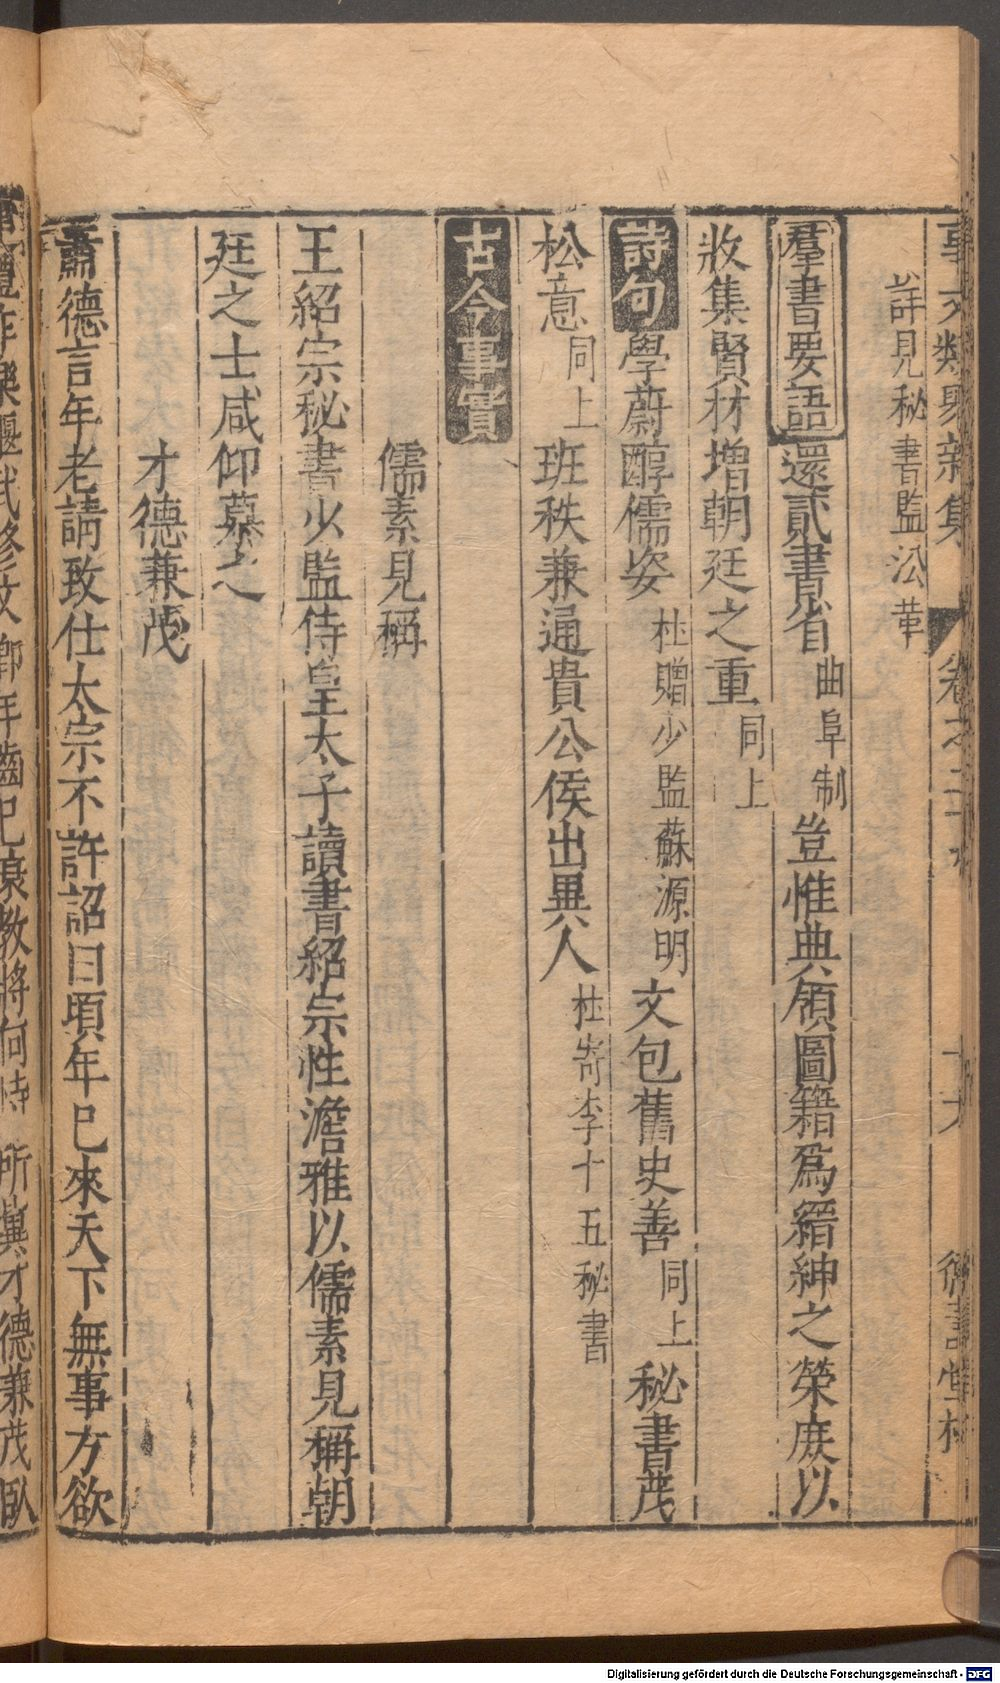 事文類聚新集 卷之二十 十六 德壽堂梓
詳見秘書監㳂革
羣書要語 還貳書省曲阜制豈惟典領圖籍爲縉紳之榮庻以
收集賢材增朝廷之重同上
詩句 學蔚醇儒姿杜贈少監蘇源明文包舊史善同上秘書茂
松意同上班秩兼通貴公侯出異人杜寄李十五秘書
古今事實
儒素見稱
王紹宗秘書少監侍皇太子讀書紹宗性澹雅以儒素見稱朝
廷之士咸仰慕之
才德兼茂
蕭德言年老請致仕太宗不許詔曰頃年已來天下無事方欲
禮作樂偃武修文卿年齒已衰教將何恃所冀才德兼茂臥
Digitalisierung gefördert durch die Deutsche Forschungsgemeinschaft - DFG